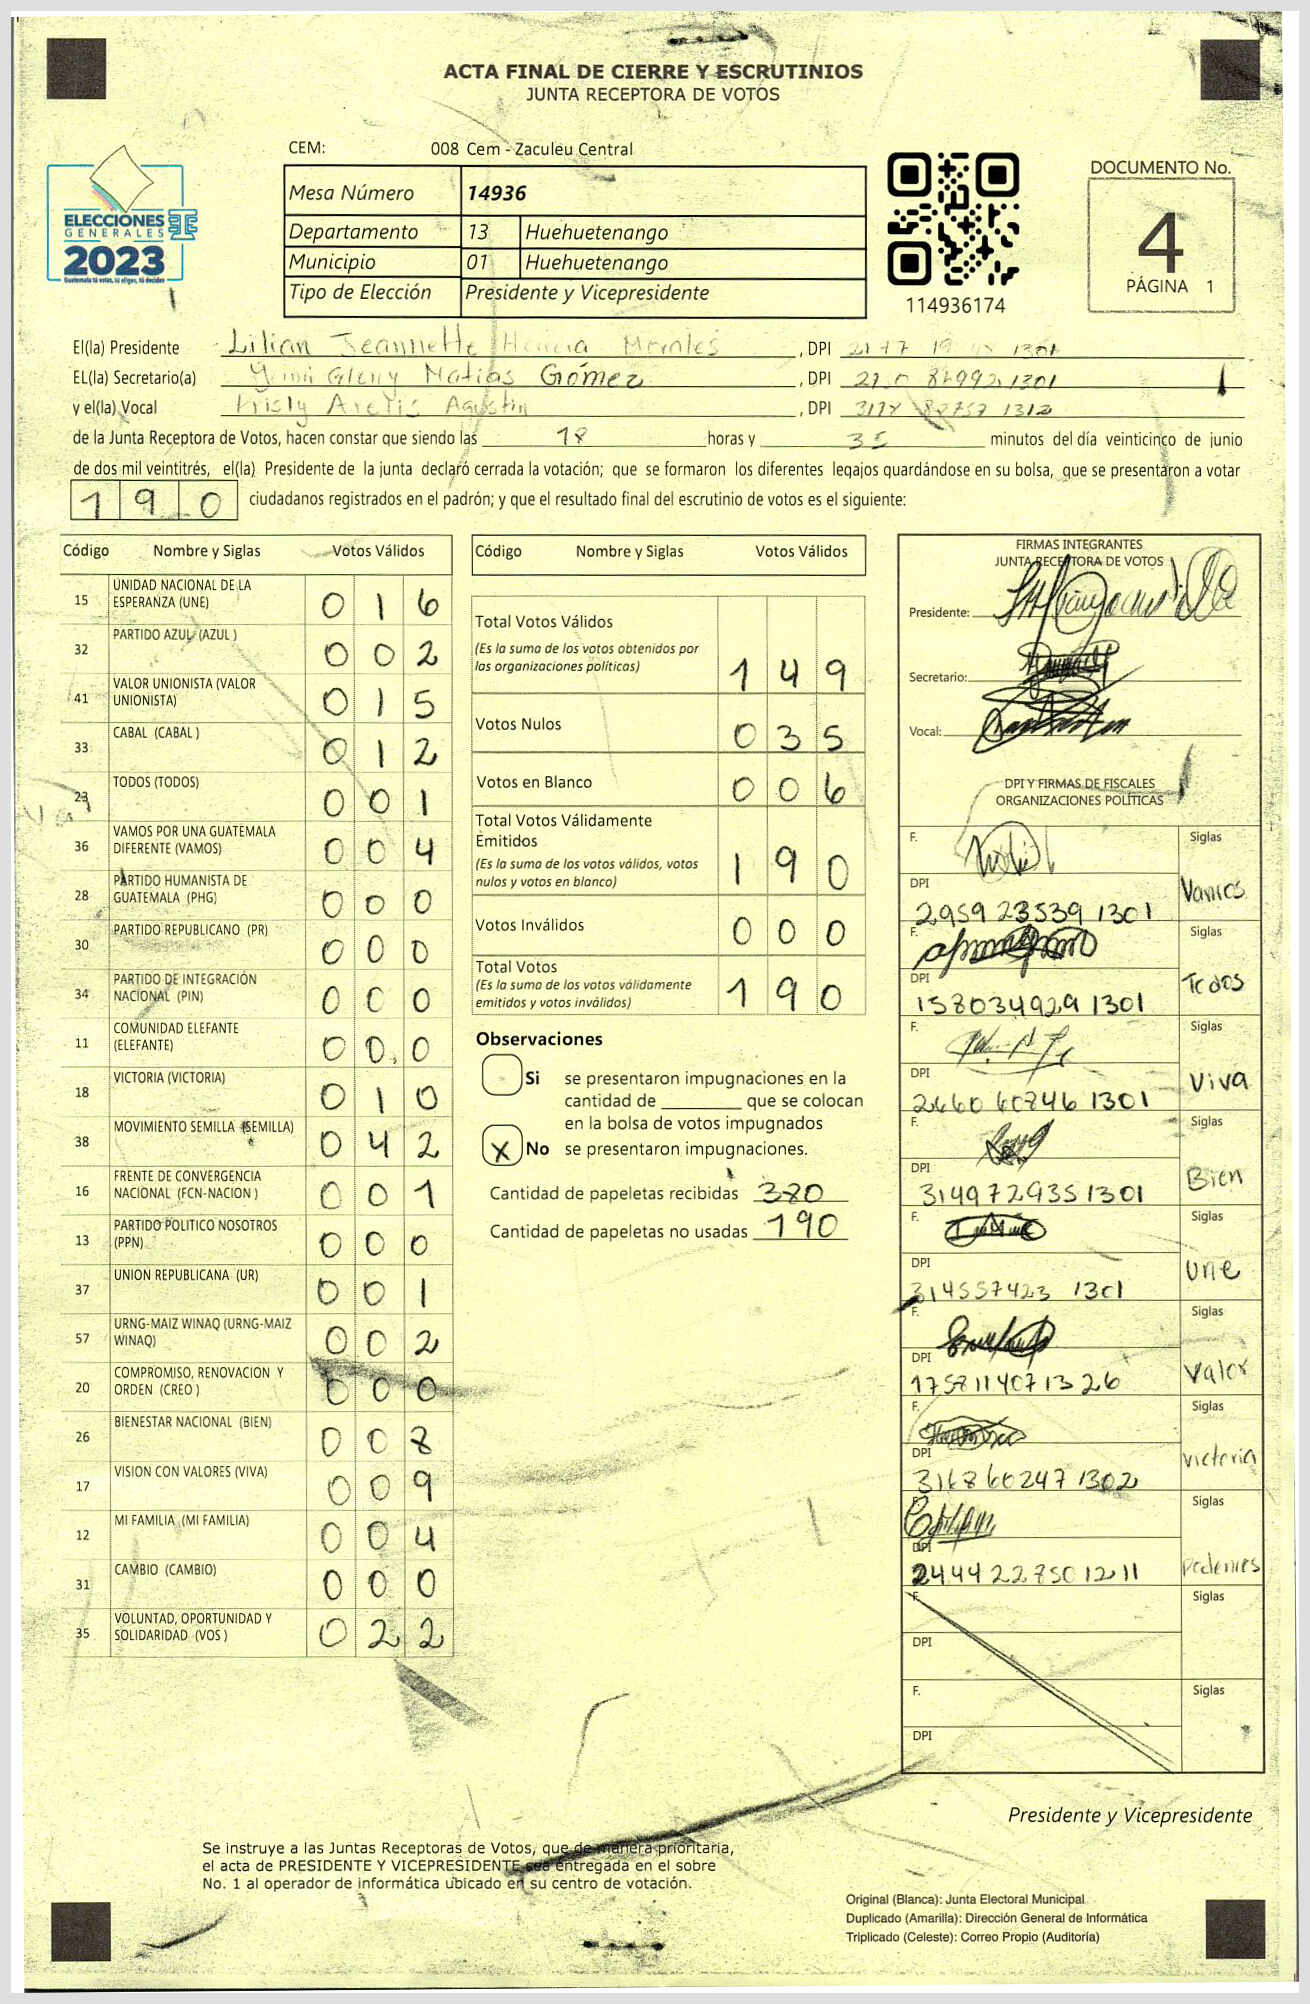 ACTA FINAL DE CIERRE Y ESCRUTINIOS
JUNTA RECEPTORA DE VOTOS
CEM: 008 Cem - Zaculeu Central
Mesa Número 14936
Departamento 13 Huehuetenango
Municipio 01 Huehuetenango
Tipo de Elección Presidente y Vicepresidente
ELECCIONES
GENERALES
2023
Guatemala tú votas, tú eliges, tú decides
114936174
DOCUMENTO No.
4
PÁGINA 1
El(la) Presidente Lilian Jeannette Morales, DPI 1301
EL(la) Secretario(a) Matías Gómez, DPI 1301
y el(la) Vocal Agustin, DPI 1312
de la Junta Receptora de Votos, hacen constar que siendo las 18 horas y 35 minutos del día veinticinco de junio
de dos mil veintitrés, el(la) Presidente de la junta declaró cerrada la votación; que se formaron los diferentes legajos quardándose en su bolsa, que se presentaron a votar
190 ciudadanos registrados en el padrón; y que el resultado final del escrutinio de votos es el siguiente:
Código Nombre y Siglas Votos Válidos
15 UNIDAD NACIONAL DE LA ESPERANZA (UNE) 016
32 PARTIDO AZUL (AZUL ) 002
41 VALOR UNIONISTA (VALOR UNIONISTA) 015
33 CABAL (CABAL ) 012
23 TODOS (TODOS) 001
36 VAMOS POR UNA GUATEMALA DIFERENTE (VAMOS) 004
28 PARTIDO HUMANISTA DE GUATEMALA (PHG) 000
30 PARTIDO REPUBLICANO (PR) 000
34 PARTIDO DE INTEGRACIÓN NACIONAL (PIN) 000
11 COMUNIDAD ELEFANTE (ELEFANTE) 000
18 VICTORIA (VICTORIA) 010
38 MOVIMIENTO SEMILLA (SEMILLA) 042
16 FRENTE DE CONVERGENCIA NACIONAL (FCN-NACION ) 001
13 PARTIDO POLITICO NOSOTROS (PPN) 000
37 UNION REPUBLICANA (UR) 001
57 URNG-MAIZ WINAQ (URNG-MAIZ WINAQ) 002
20 COMPROMISO, RENOVACION Y ORDEN (CREO ) 000
26 BIENESTAR NACIONAL (BIEN) 008
17 VISION CON VALORES (VIVA) 009
12 MI FAMILIA (MI FAMILIA) 004
31 CAMBIO (CAMBIO) 000
35 VOLUNTAD, OPORTUNIDAD Y SOLIDARIDAD (VOS ) 022
Código Nombre y Siglas Votos Válidos
Total Votos Válidos 149
(Es la suma de los votos obtenidos por
las organizaciones políticas)
Votos Nulos 035
Votos en Blanco 006
Total Votos Válidamente
Emitidos 190
(Es la suma de los votos válidos, votos
nulos y votos en blanco)
Votos Inválidos 000
Total Votos 190
(Es la suma de los votos válidamente
emitidos y votos inválidos)
Observaciones
Si se presentaron impugnaciones en la
cantidad de ________ que se colocan
en la bolsa de votos impugnados
X No se presentaron impugnaciones.
Cantidad de papeletas recibidas 380
Cantidad de papeletas no usadas 190
FIRMAS INTEGRANTES
JUNTA RECEPTORA DE VOTOS
Presidente:
Secretario:
Vocal:
DPI Y FIRMAS DE FISCALES
ORGANIZACIONES POLÍTICAS
F. Siglas
DPI 2959 23539 1301 Vamos
F. Siglas
DPI 158034929 1301 Todos
F. Siglas
DPI 2660 60746 1301 Viva
F. Siglas
DPI 314972935 1301 Bien
F. Siglas
DPI 314557423 1301 Une
F. Siglas
DPI 175811407 1326 Valor
F. Siglas
DPI 316860247 1302 victoria
F. Siglas
DPI 2444 22750 1211 Podemos
F. Siglas
DPI
F. Siglas
DPI
Presidente y Vicepresidente
Se instruye a las Juntas Receptoras de Votos, que de manera prioritaria,
el acta de PRESIDENTE Y VICEPRESIDENTE sea entregada en el sobre
No. 1 al operador de informática ubicado en su centro de votación.
Original (Blanca): Junta Electoral Municipal
Duplicado (Amarilla): Dirección General de Informática
Triplicado (Celeste): Correo Propio (Auditoría)